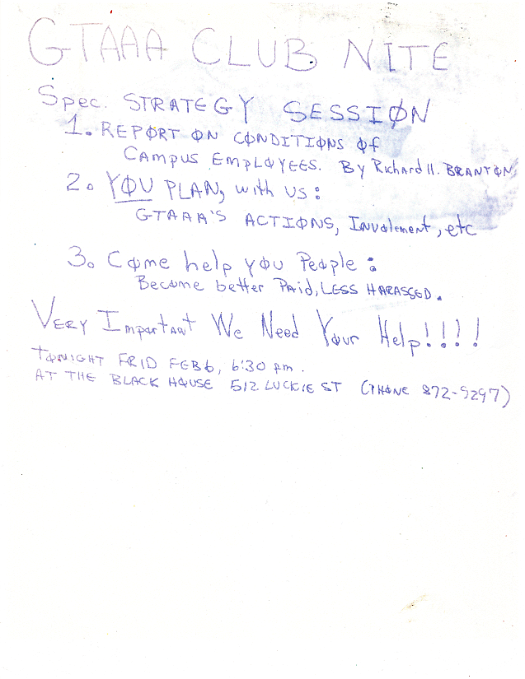 GTAAA CLUB NITE
Spec. STRATEGY SESSION
1. REPORT ON CONDITIONS of
CAMPUS EMPLOYEES. By Richard H. BRANTON
2. YOU PLAN, with us:
GTAAA'S ACTIONS, Involement, etc
3. Come help you People:
Become better Paid, LESS HARASSED.
VERY Important We Need Your Help!!!!
TONIGHT FRID FEB 6, 6:30 pm.
AT THE BLACK HOUSE 512 LUCKIE ST (PHONE 872-5297)